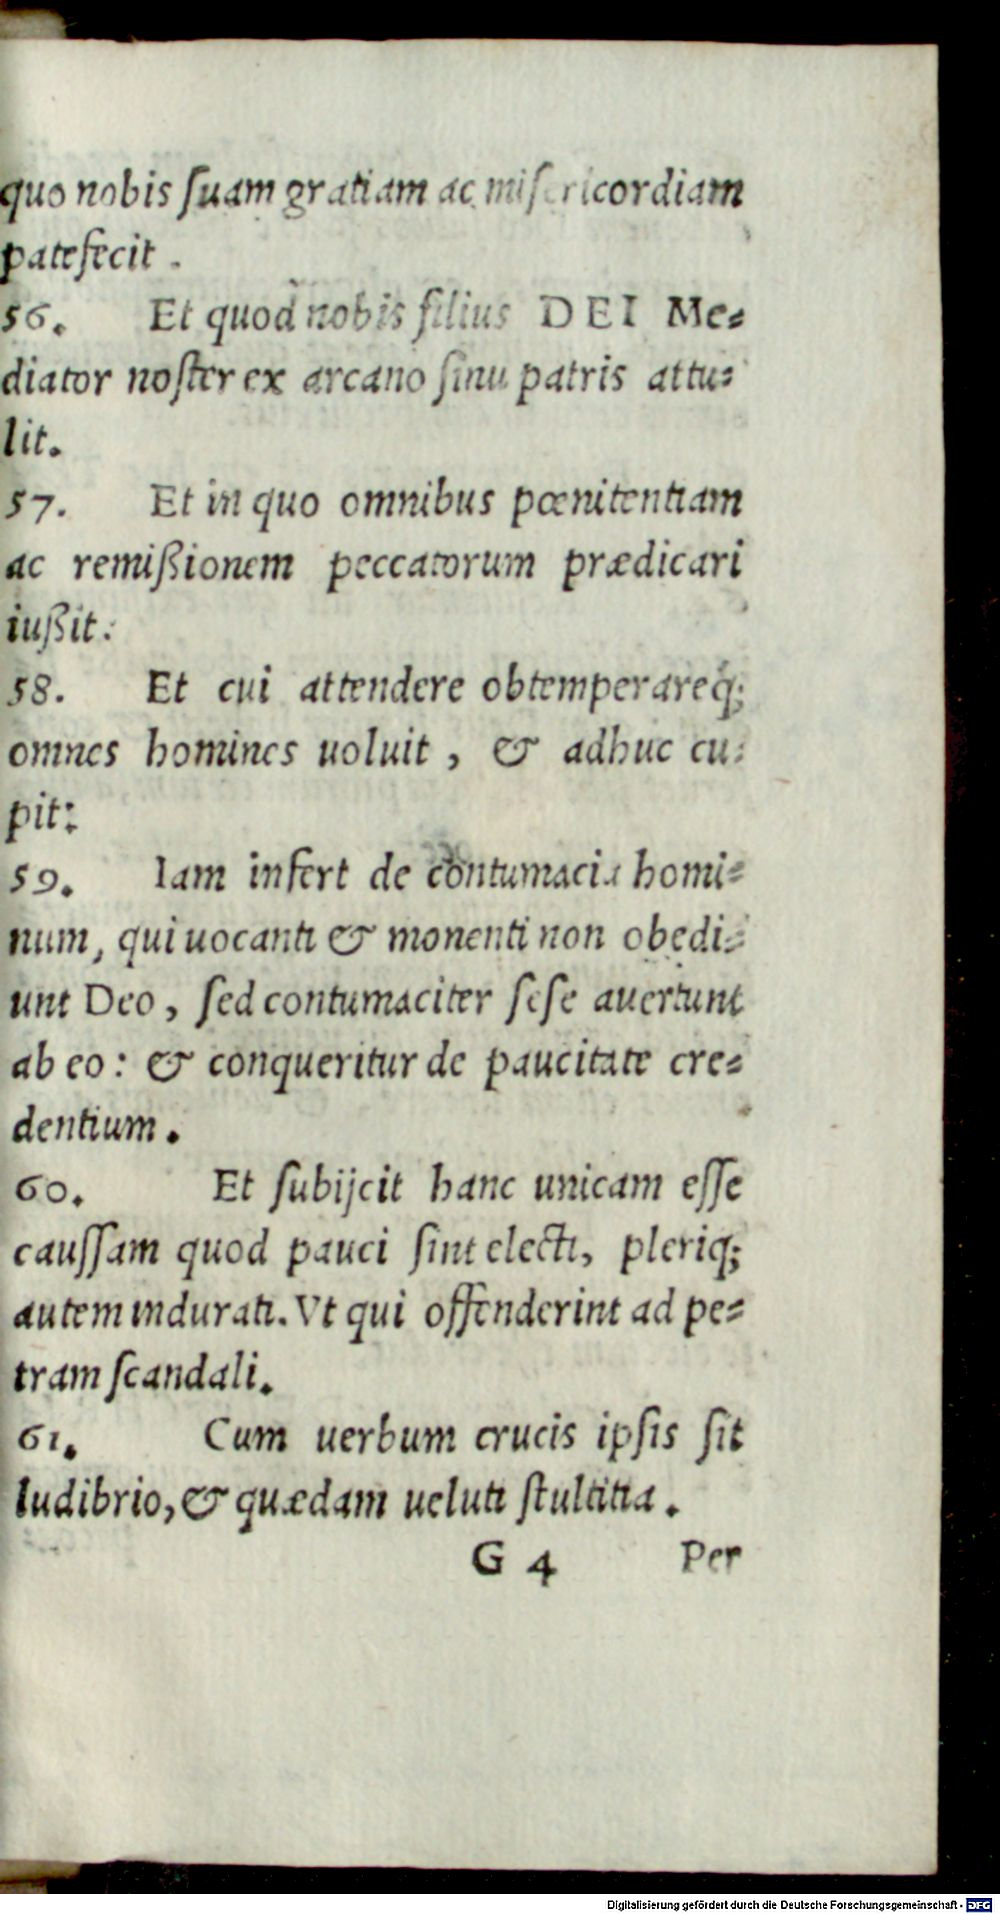 quo nobis ſuam gratiam ac miſericordiam
patefecit .
56. Et quod nobis filius DEI Me⸗
diator noſter ex arcano ſinu patris attu⸗
lit.
57. Et in quo omnibus pœnitentiam
ac remißionem peccatorum prædicari
iußit:
58. Et cui attendere obtemperareq́;
omnes homines uoluit , & adhuc cu⸗
pit:
59. Iam infert de contumacia homi⸗
num, qui uocanti & monenti non obedi⸗
unt Deo , ſed contumaciter ſeſe auertunt
ab eo : & conqueritur de paucitate cre⸗
dentium .
60. Et ſubijcit hanc unicam eſſe
cauſſam quod pauci ſint electi, pleriq;
autem indurati. Vt qui offenderint ad pe⸗
tram ſcandali.
61. Cum uerbum crucis ipſis ſit
ludibrio, & quædam ueluti ſtultitia .
G 4 Per
Digitalisierung gefördert durch die Deutsche Forschungsgemeinschaft - DFG